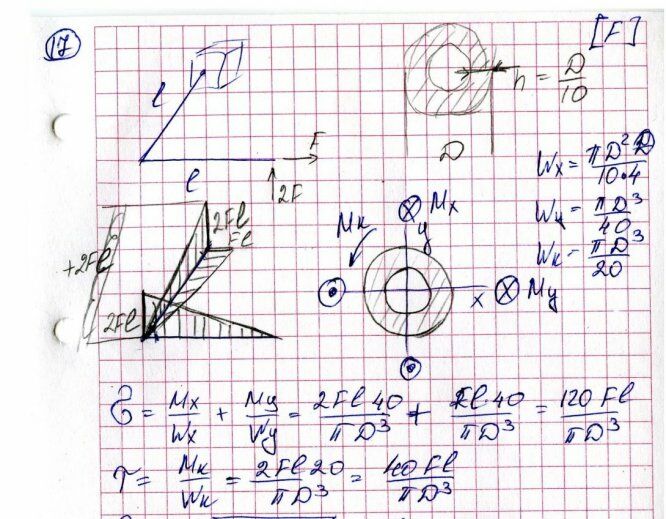 17
[F]
l
h = D/10
F
D
l
2F
Wx = πD²D/10·4
Wy = πD³/40
Wк = πD³/20
2Fl
Fl
+2Fl
2Fl
Mк
Mx
y
x
My
σ = Mx/Wx + My/Wy = 2Fl 40/πD³ + Fl 40/πD³ = 120Fl/πD³
τ = Mк/Wк = 2Fl 20/πD³ = 40Fl/πD³